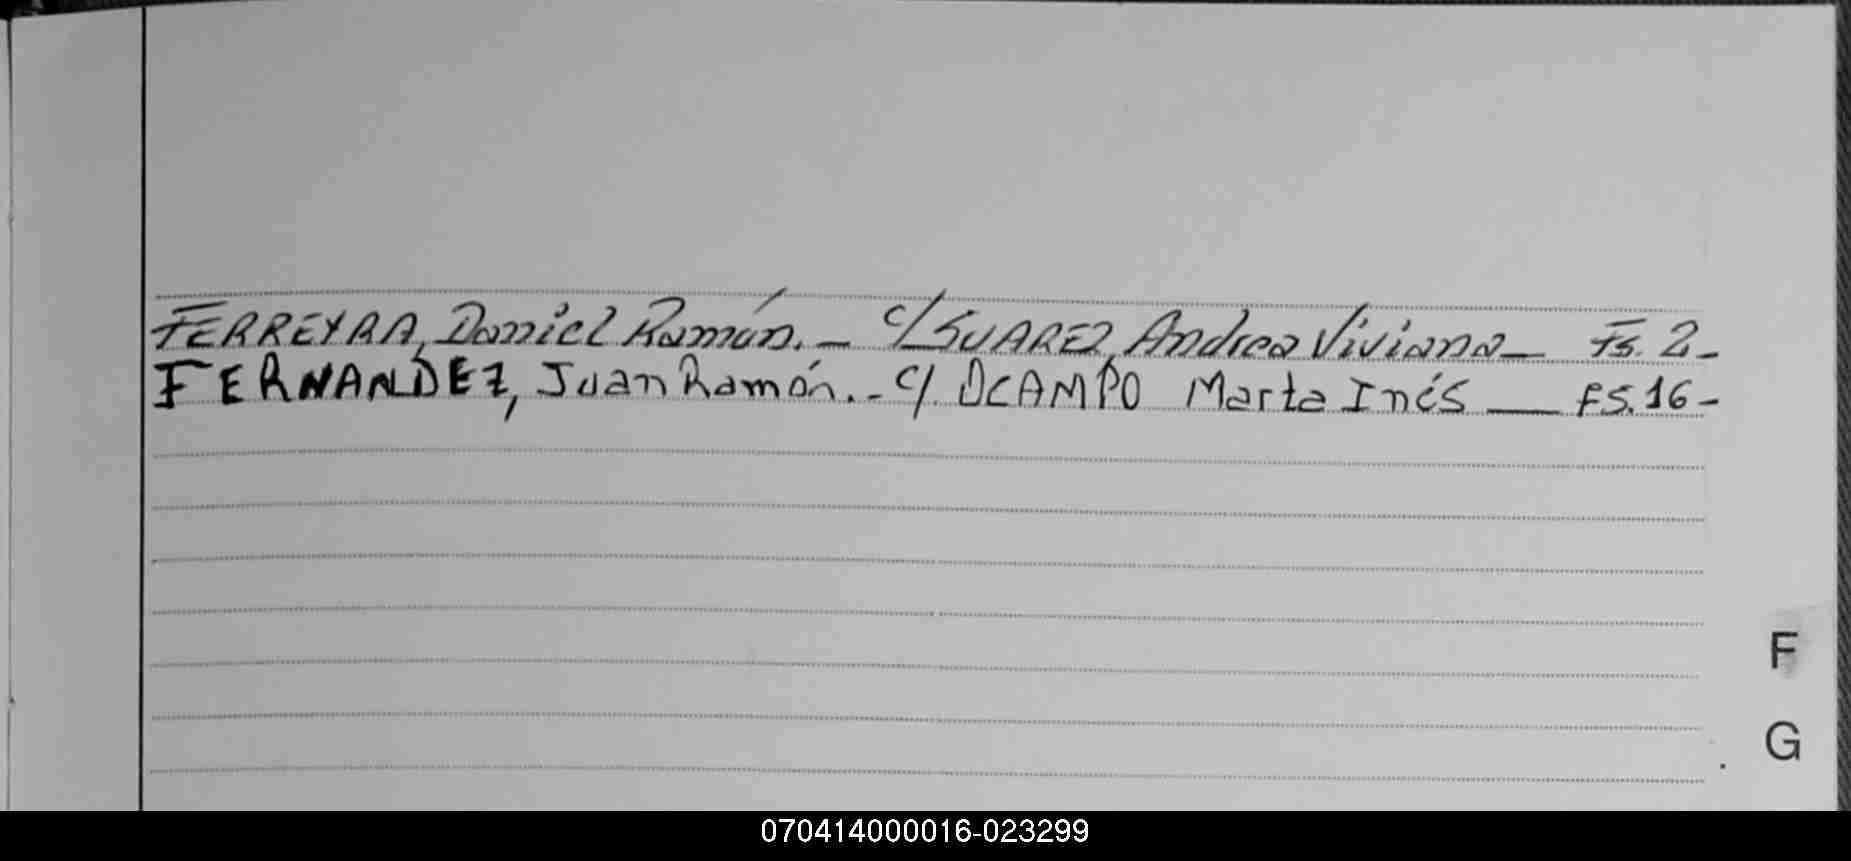 FERREYRA, Daniel Ramón. - c/ SUAREZ, Andrea Viviana - Fs. 2 -
FERNANDEZ, Juan Ramón. - c/. OCAMPO Marta Inés — FS. 16 -
F
G
070414000016-023299